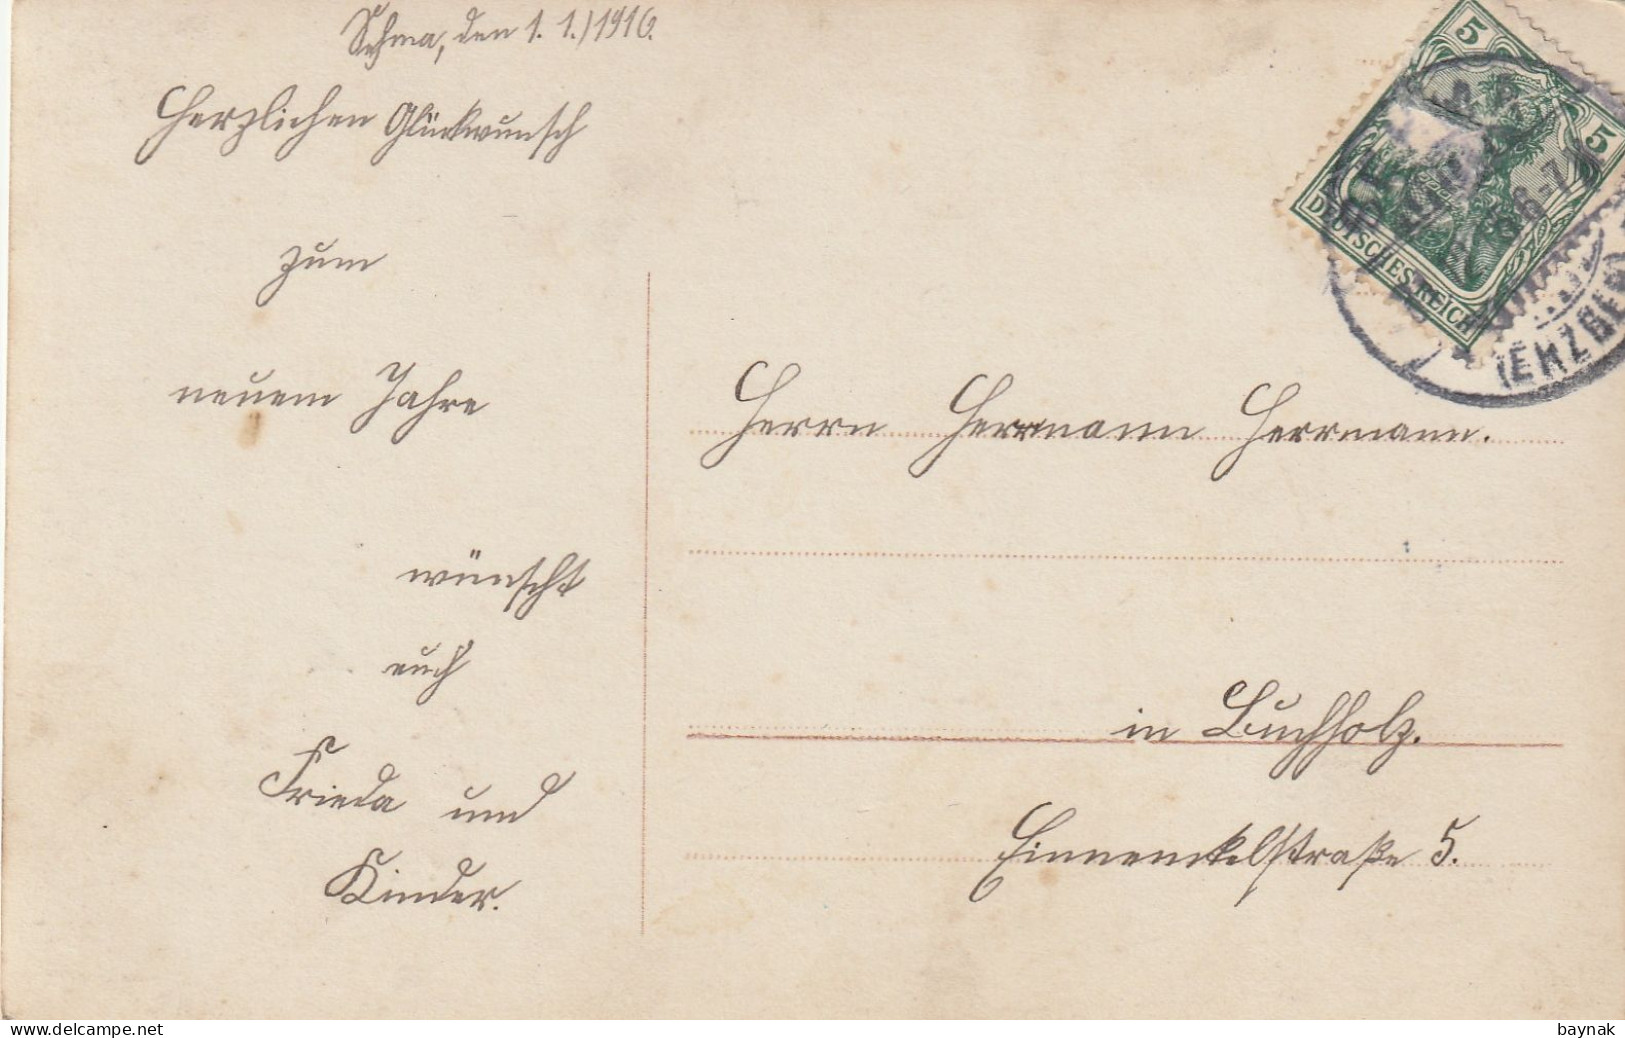 Sehma, den 1. 1./1916.
Herzlichen Glückwunsch
zum
neuem Jahre
wünscht
euch
Frieda und
Kinder.
5
5
DEUTSCHES REICH
SEHMA
6-7
(ERZGEB)
Herrn Herrmann Herrmann.
in Buchholz.
straße 5.
www.delcampe.net
baynak